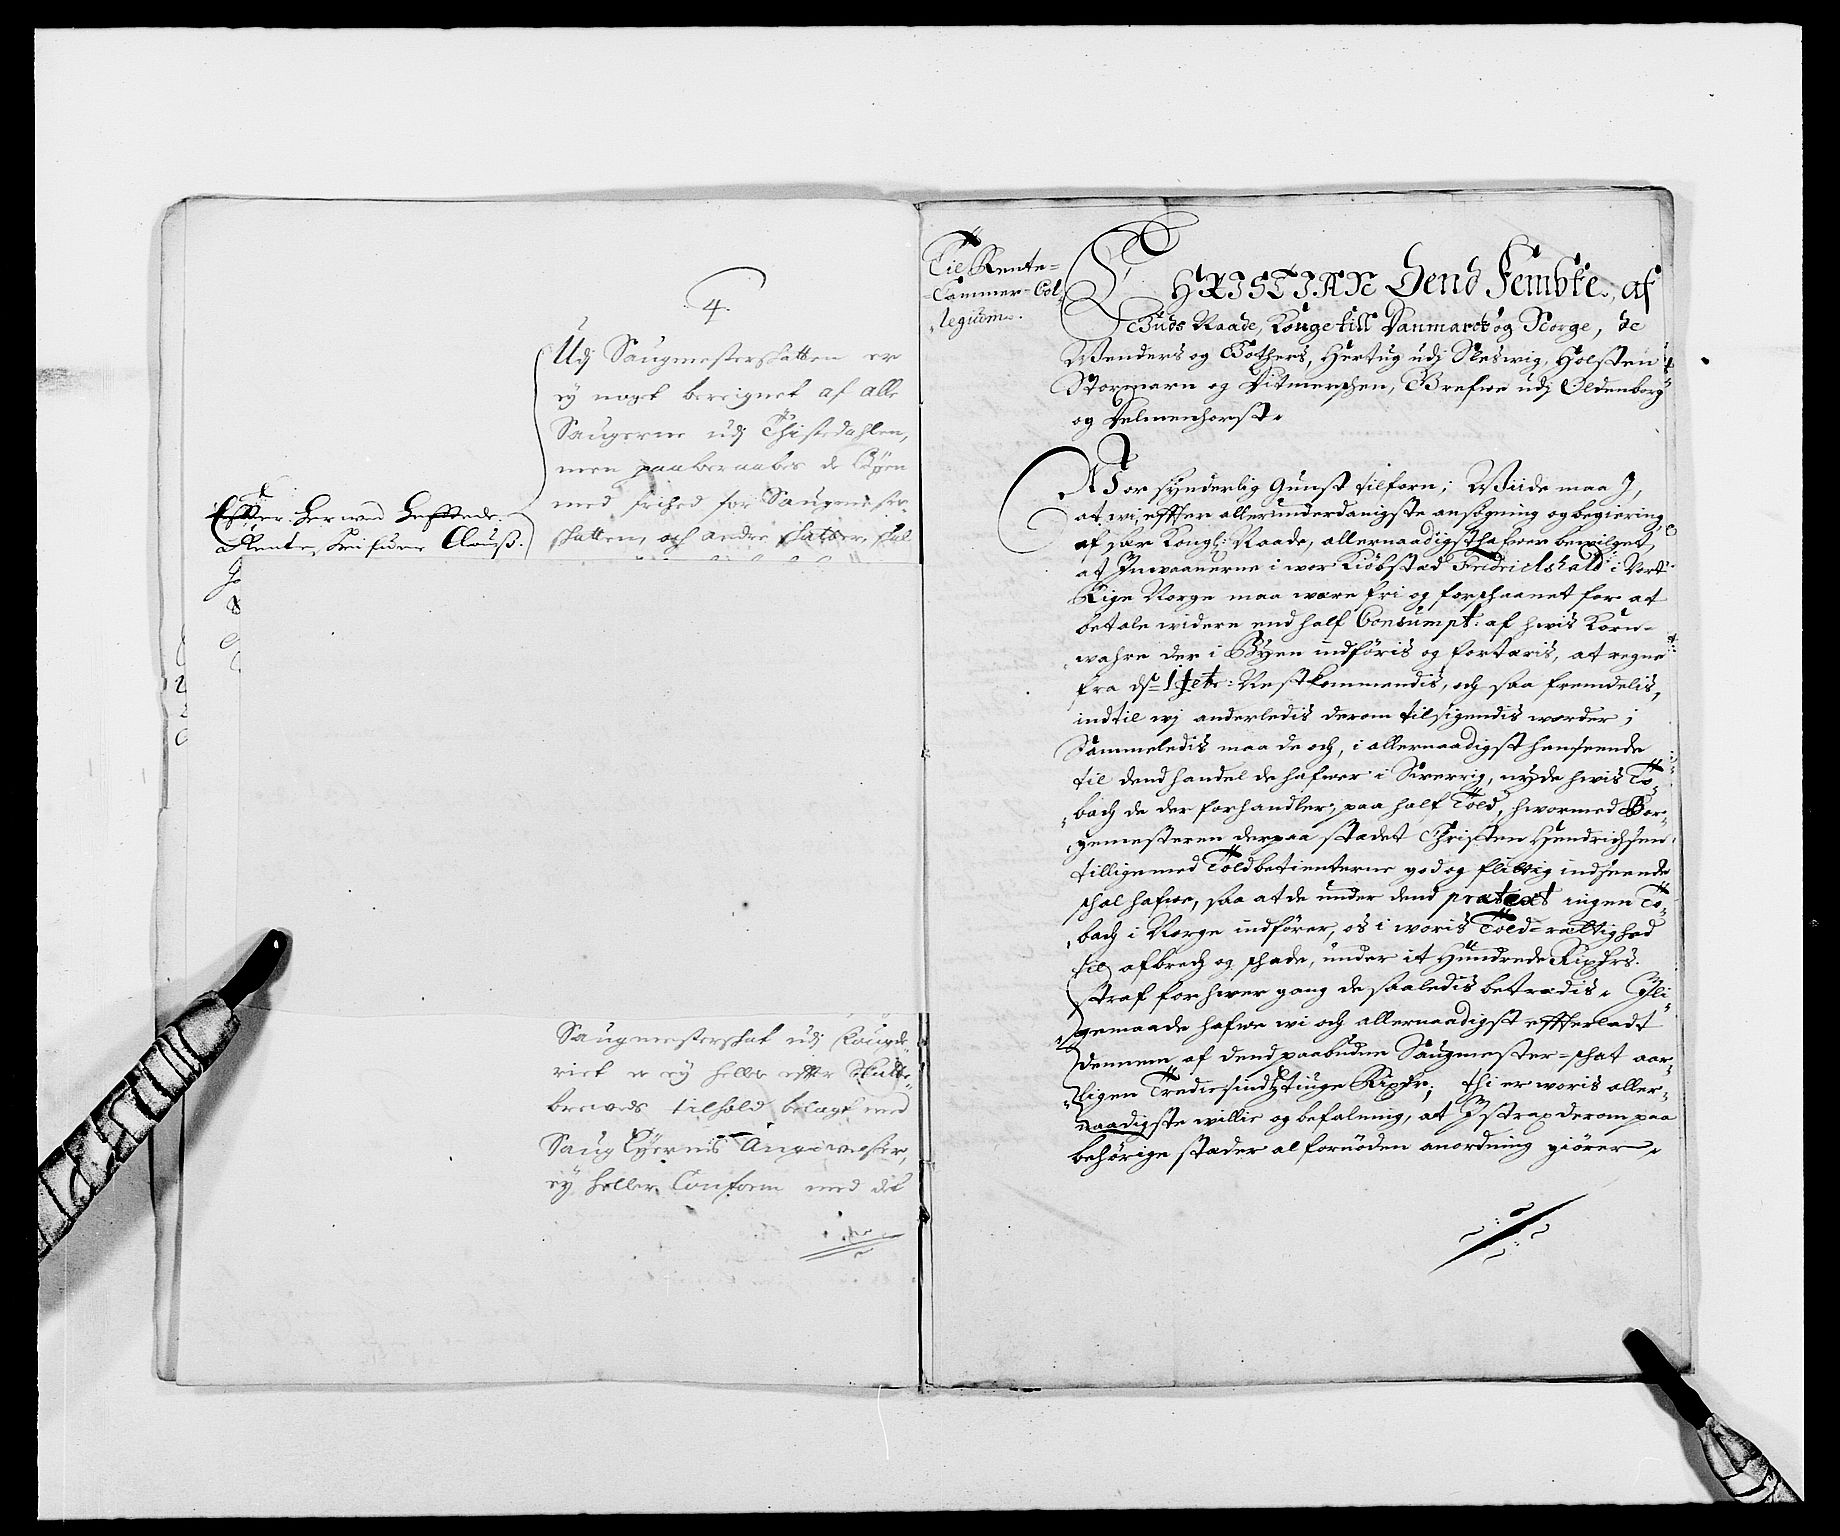 4.
Udj Saugmesterskatten er
ej noget beregnet af alle
Saugerne udj Thistedahlen,
men paaberaabes de Byen
med frihed for Saugmester
skatten, och andre skatter, skal
Efter herwed heftede
Renteskrifuer Clauß.
Saugmesterskat udj
riet er ej heller efter
brewets tilhold belagt med
Saug Eyernis Angiwelser,
ej heller Conform med det
Til Rente-
Cammer-Col-
legium.
CHRISTIAN Dend Fembte, af
Guds Naade, Konge till Danmarck og Norge, de
Wenders og Gothers, Hertug udj Sleswig, Holsten
Stormarn og Ditmerschen, Grefwe udj Oldenborg
og Delmenhorst.
Wor synderlig Gunst tilforn; Wiide maa I,
at wi, effter allerunderdanigste ansøgning og begiering
af for Kongl: Naade, allernaadigst hafwer bewilget,
at Inwaanerne i wor Kiöbstad Fredrichshald i Vort
Rige Norge maa were fri og forschaanet for at
betale widere end half Consumpt: af hwis Korn-
wahre der i Byen indføris og fortæris, at regne
fra d. 1 Nestkommendis, och saa fremdelis,
indtil wj anderledis derom tilsigendis worder;
Sammeledis maa de och, i allernaadigst henseende
til dend handel de hafwer i Swerrig, nyde hwis To-
bach de der forhandler, paa half Told, hwormed Bor-
gemesteren derpaa stædet Christen Hendrichsen
tilligemed Toldbetienterne god og flittig indseende
schal hafwe, saa at de under dend prætext ingen To-
bach i Norge indfører, os i woris Told-rettighed
til afbrech og schade, under it Hundrede Rixdrs.
straf for hwer gang de saaledis betrædis. Ili-
gemaade hafwe wi och allernaadigst effterladt
dennem af dend paabudne Saugmester-schat aar-
ligen Trediesindztiuge Rixdr; thi er woris aller-
naadigste willie og befalning, at I strax derom paa
behörige stæder al fornøden anordning giører.